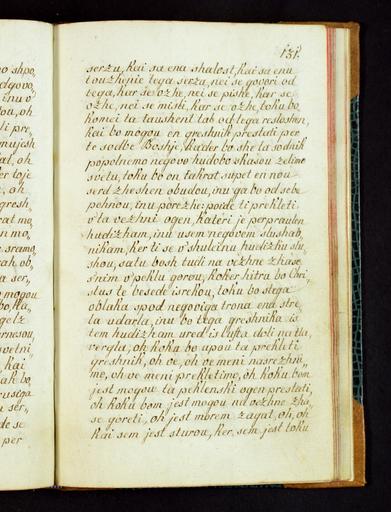 131.
serza, kai sa ena shalost, kai sa enu
toushenie tega serza, nei se govori od
tega, kar se ozhe, nei se pishe, kar se
ozhe, nei se misli, kar se ozhe, toku bo
komei ta taushent tal od lega reslosnen,
kai bo mogou en greshnik prestati per
te sodbe Boshje, kader bo she ta sodnik
popolnemo negovo hudobo skasou zelimo
svetu, toku bo on takrat supet en nou
serd zheshen obudou, inu ga bo od sebe
pehnou, inu porezhe: poide ti prekleti
v'ta vezhni ogen, kateri je perpraulen
hudizham, inu usem negovem slushab,
nikam, ker ti se v'shuleinu hudizhu slu
shou, satu bosh tudi na vezhne zhase
s'nim v'peklu gorou, koker hitro bo Chri,
stus te besede isrekou, toku bo s'tega
oblaka spod negoviga trona ena stre,
la udarla, inu bo tega greshnika is
tem hudizham ured is lufta doli na tla
vergla, oh koku bo upou ta prekleti
greshnik, oh ve, oh ve meni nasrezhni,
mo, oh ve meni prekletimo, oh koku bom
jest mogou ta peklenski ogen prestati,
oh koku bom jest mogou na vezhne zha,
se goreti, oh jest morem zagat, oh, oh
kai sem jest sturou, ker sem jest toku